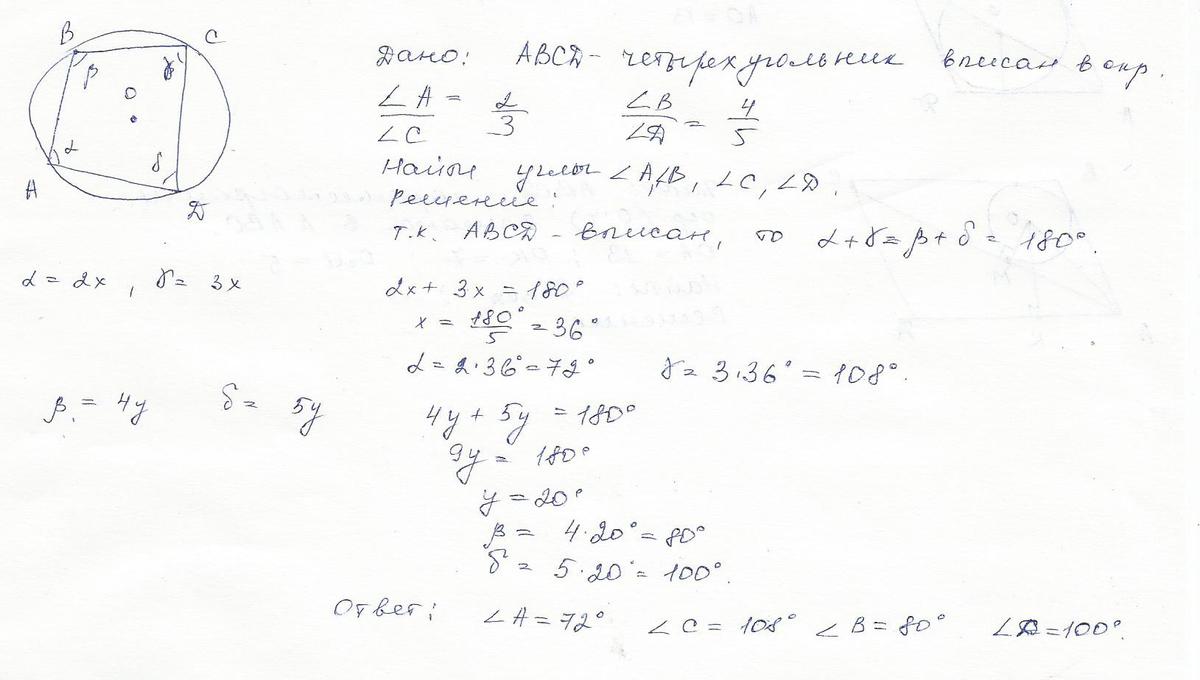 B C
β γ
O
α δ
A D
Дано: ABCD - четырехугольник вписан в окр.
∠A/∠C = 2/3 ∠B/∠D = 4/5
Найти углы ∠A, ∠B, ∠C, ∠D.
Решение:
т.к. ABCD - вписан, то α + γ = β + δ = 180°.
α = 2x, γ = 3x 2x + 3x = 180°
x = 180°/5 = 36°
α = 2·36° = 72° γ = 3·36° = 108°.
β = 4y δ = 5y 4y + 5y = 180°
9y = 180°
y = 20°
β = 4·20° = 80°
δ = 5·20° = 100°.
Ответ: ∠A = 72° ∠C = 108° ∠B = 80° ∠D = 100°.